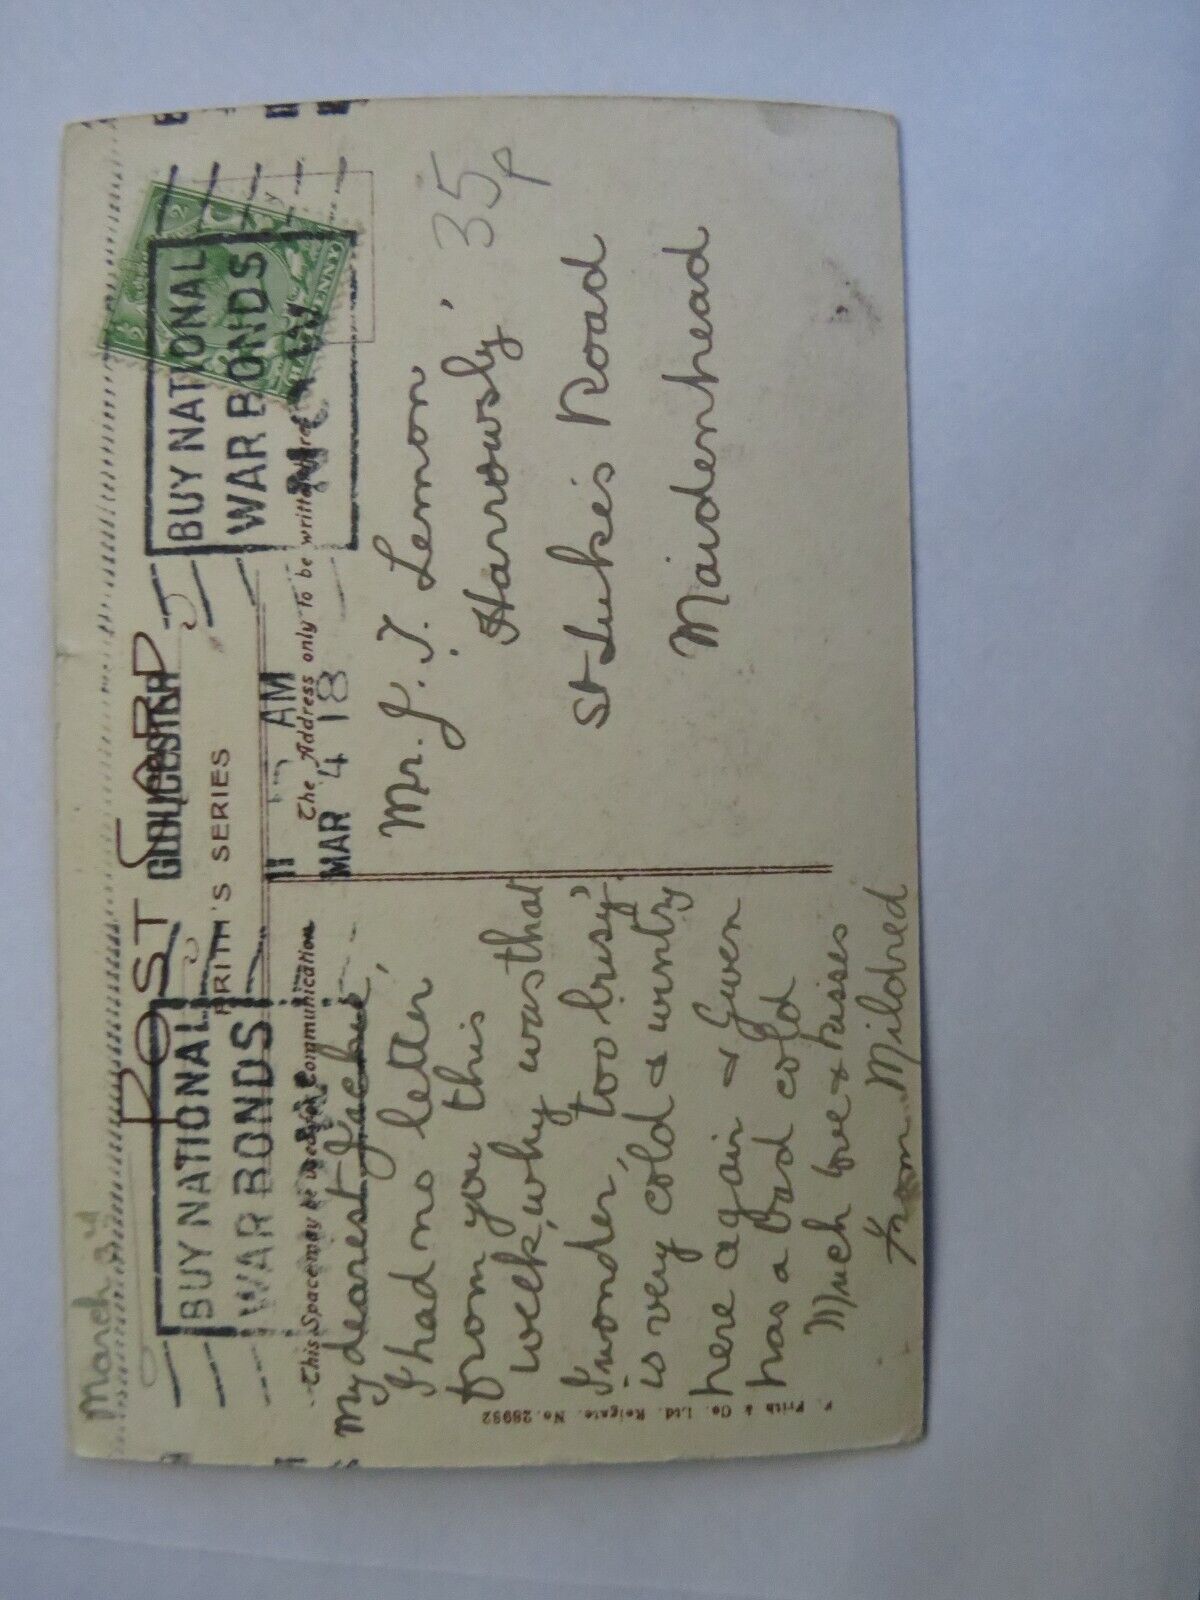 March 3rd
POST CARD
FRITH'S SERIES
GLOUCESTER
11 AM
MAR 4 18
BUY NATIONAL
WAR BONDS
NOW
BUY NATIONAL
WAR BONDS
NOW
HALFPENNY
This Space may be used for Communication
The Address only to be written here
My dearest Jackie,
I had no letter
from you this
week, why was that
I wonder, too busy,
is very cold & wintry
here again & Gwen
has a bad cold
Much love & kisses
from Mildred
Mr. J. T. Lemon
Harrowsly,
35p
St Luke's Road
Maidenhead
F. Frith & Co. Ltd. Reigate. No. 28932